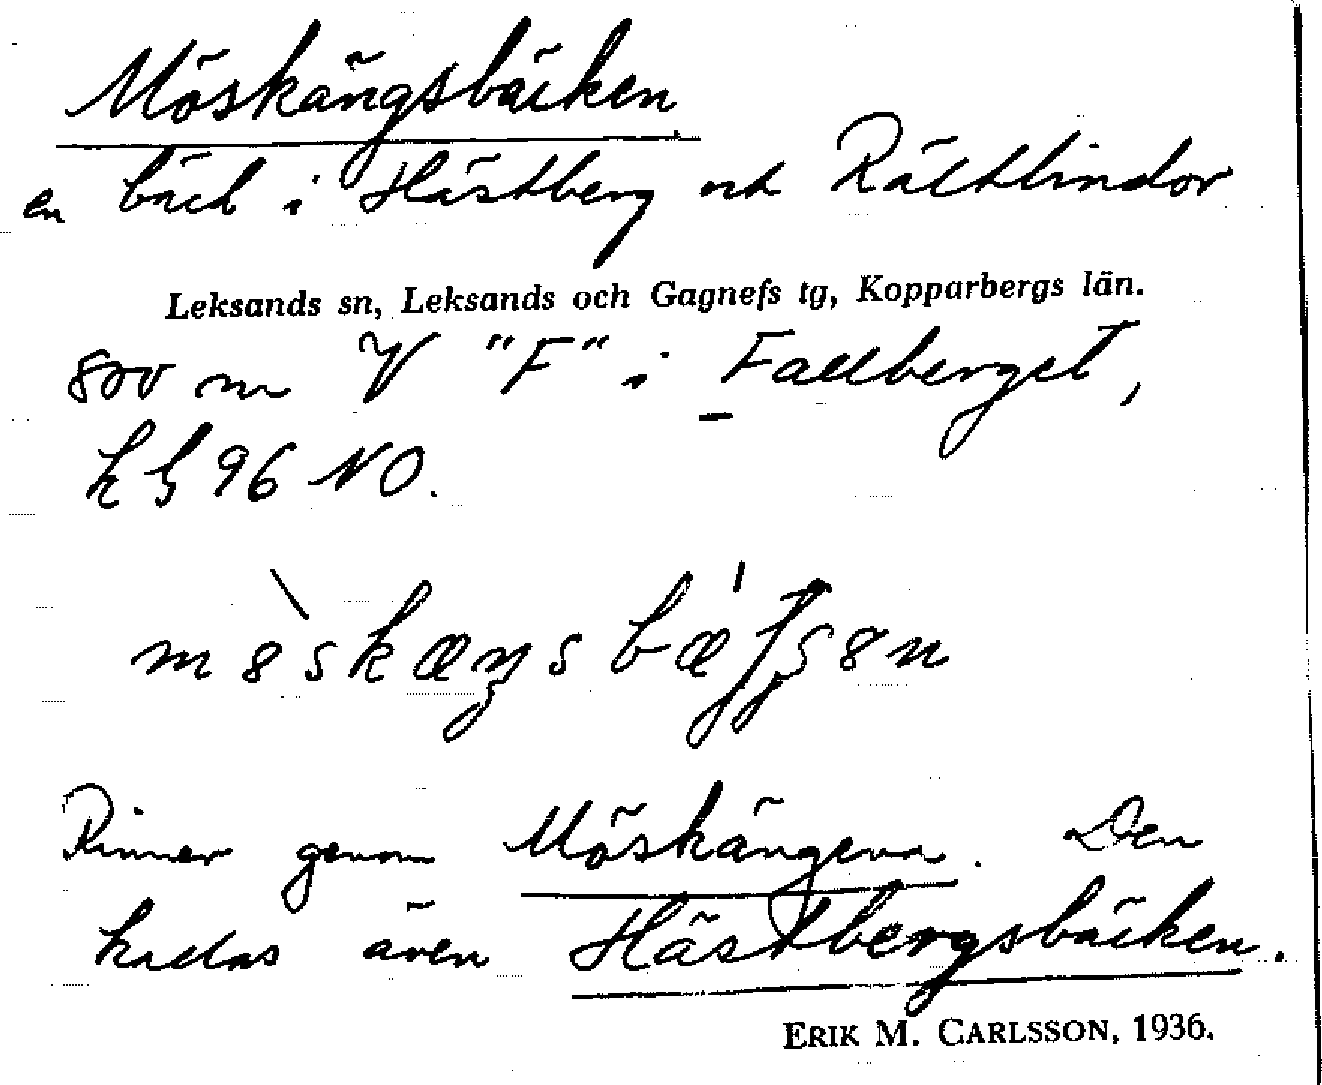 Möskängsbäcken
en bäck i Hästberg och Rältlindor
Leksands sn, Leksands och Gagnefs tg, Kopparbergs län.
800 m V "F" i Fallberget,
kb 96 NO.
Rinner genom Möskängena. Den
kallas även Hästbergsbäcken.
ERIK M. CARLSSON, 1936.